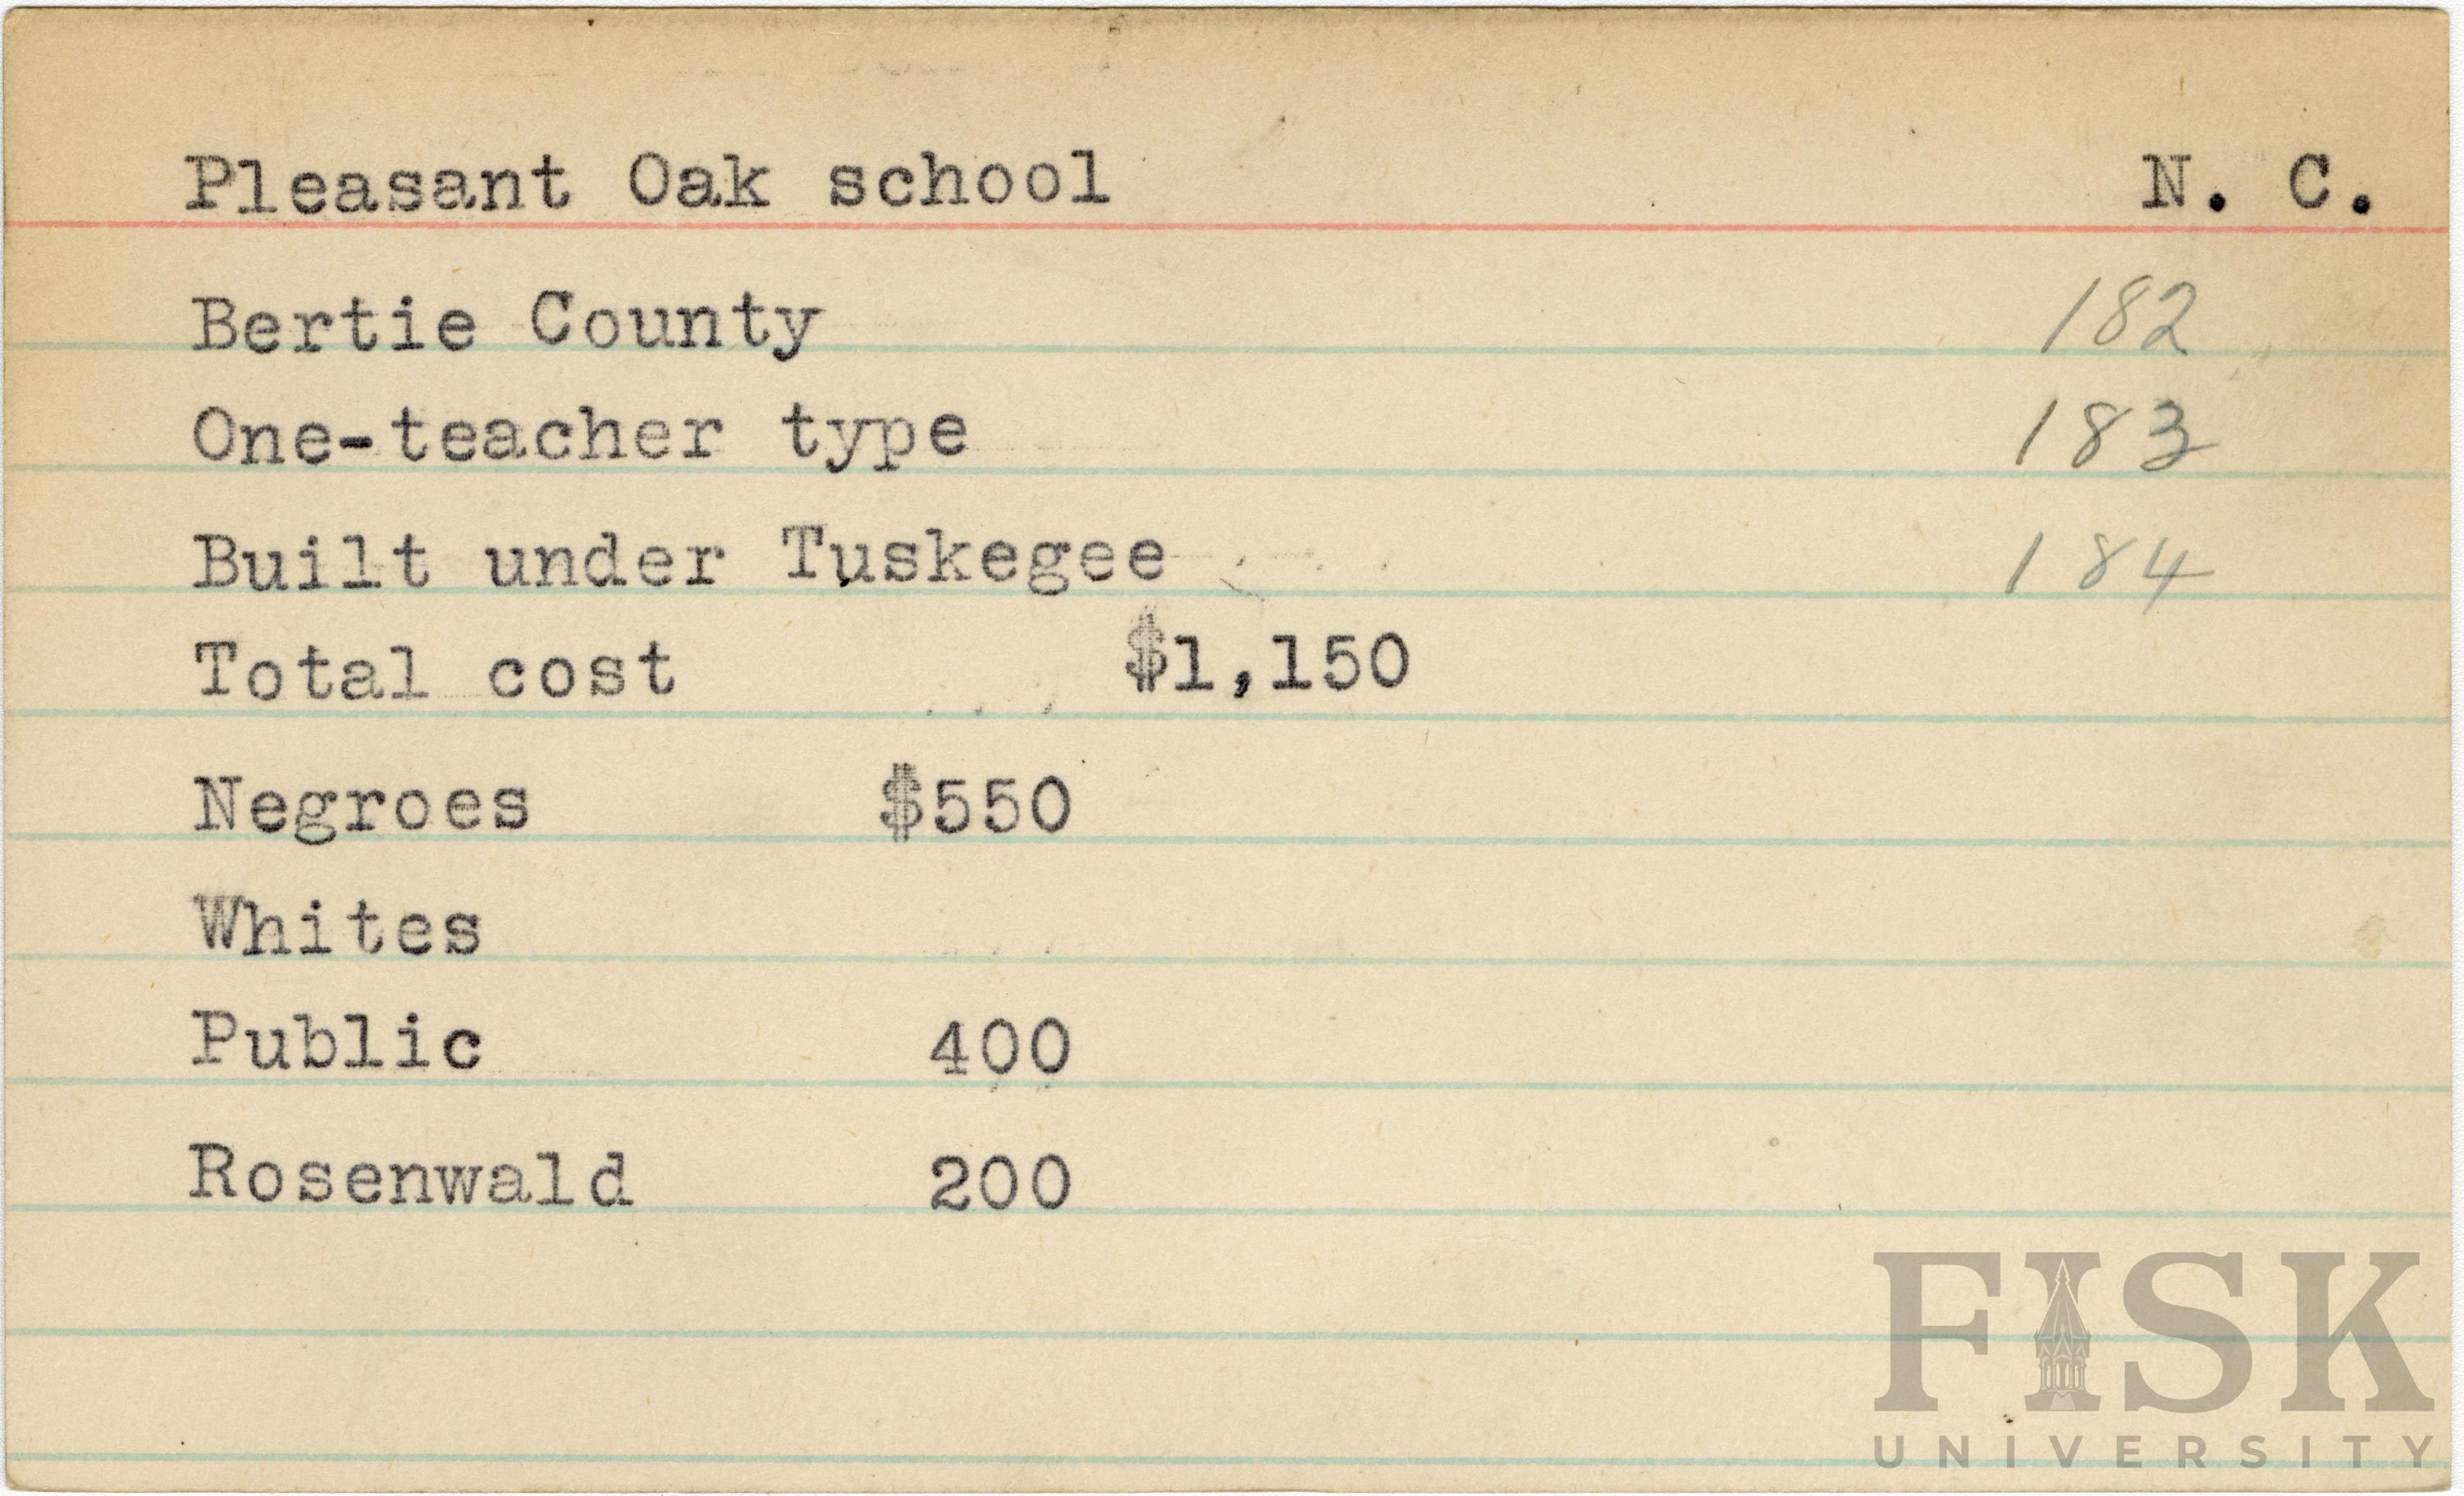 Pleasant Oak school N. C.
Bertie County 182
One-teacher type 183
Built under Tuskegee 184
Total cost $1,150
Negroes $550
Whites
Public 400
Rosenwald 200
FISK
UNIVERSITY